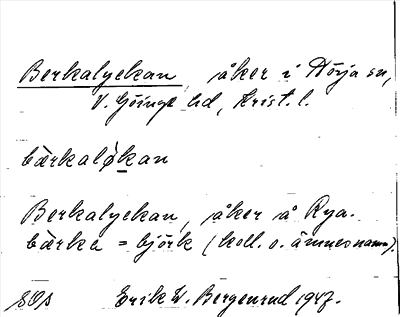 Berkalyckan, åker i Hörja sn,
V. Göinge hd, Krist. l.
bæ̀rkaló̱kan
Berkalyckan, åker å Rya.
bæ̀rka = björk (koll. o. ämnesnamn).
Erik W. Bergenrud 1947.